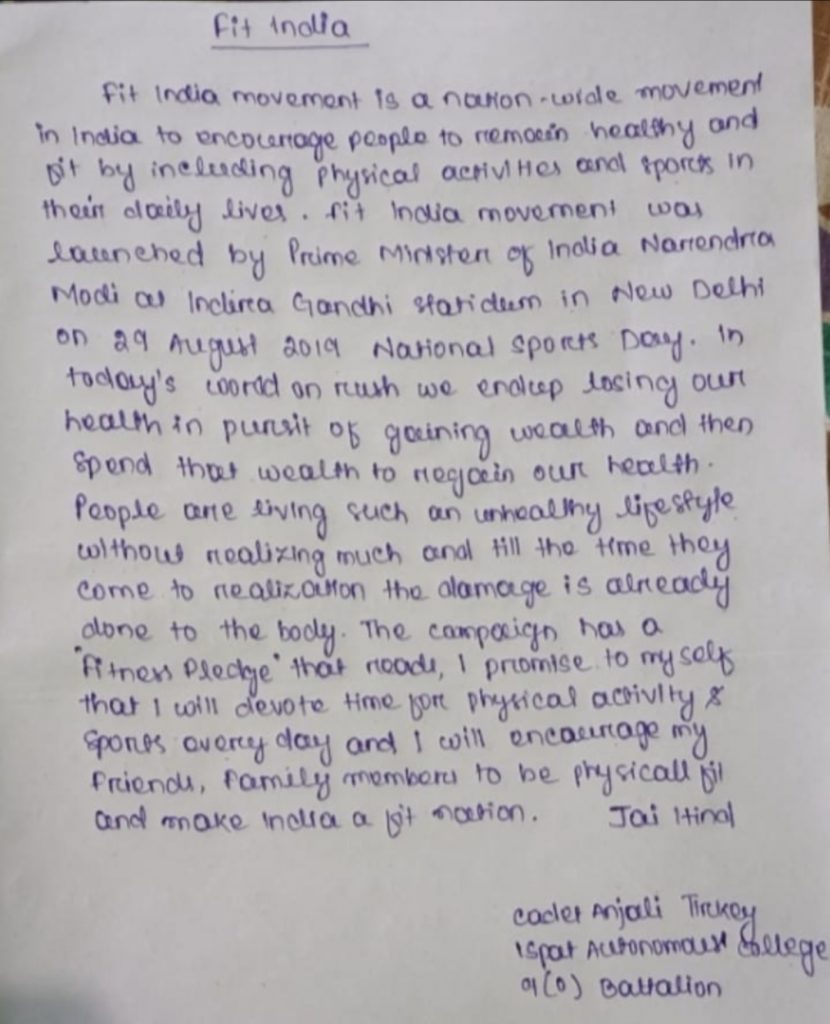 Fit India
Fit India movement is a nation-wide movement
in India to encourage people to remain healthy and
fit by including physical activities and sports in
their daily lives. Fit India movement was
launched by Prime Minister of India Narrendra
Modi at Indira Gandhi statidum in New Delhi
on 29 August 2019 National Sports Day. In
today's world on rush we endup losing our
health in pursit of gaining wealth and then
spend that wealth to regain our health.
People are living such an unhealthy lifestyle
without realizing much and till the time they
come to realization the damage is already
done to the body. The campaign has a
"Fitness Pledge" that reads, I promise to myself
that I will devote time for physical activity &
sports every day and I will encourage my
friends, family members to be physicall fit
and make India a fit nation. Jai Hind
Cadet Anjali Tirkey
Ispat Autonomous College
9(O) Battalion